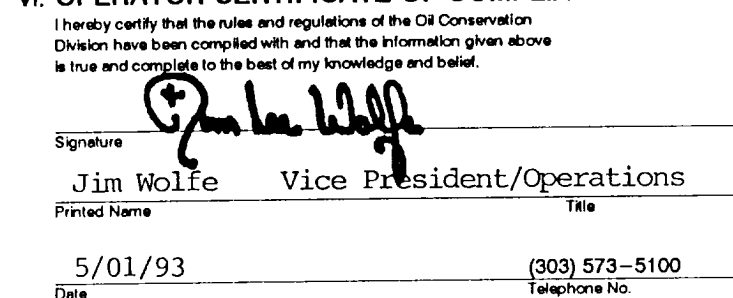 VI. OPERATOR CERTIFICATE OF
I hereby certify that the rules and regulations of the Oil Conservation
Division have been complied with and that the information given above
is true and complete to the best of my knowledge and belief.
Jim Lee Wolfe
Signature
Jim Wolfe Vice President/Operations
Printed Name Title
5/01/93 (303) 573-5100
Date Telephone No.